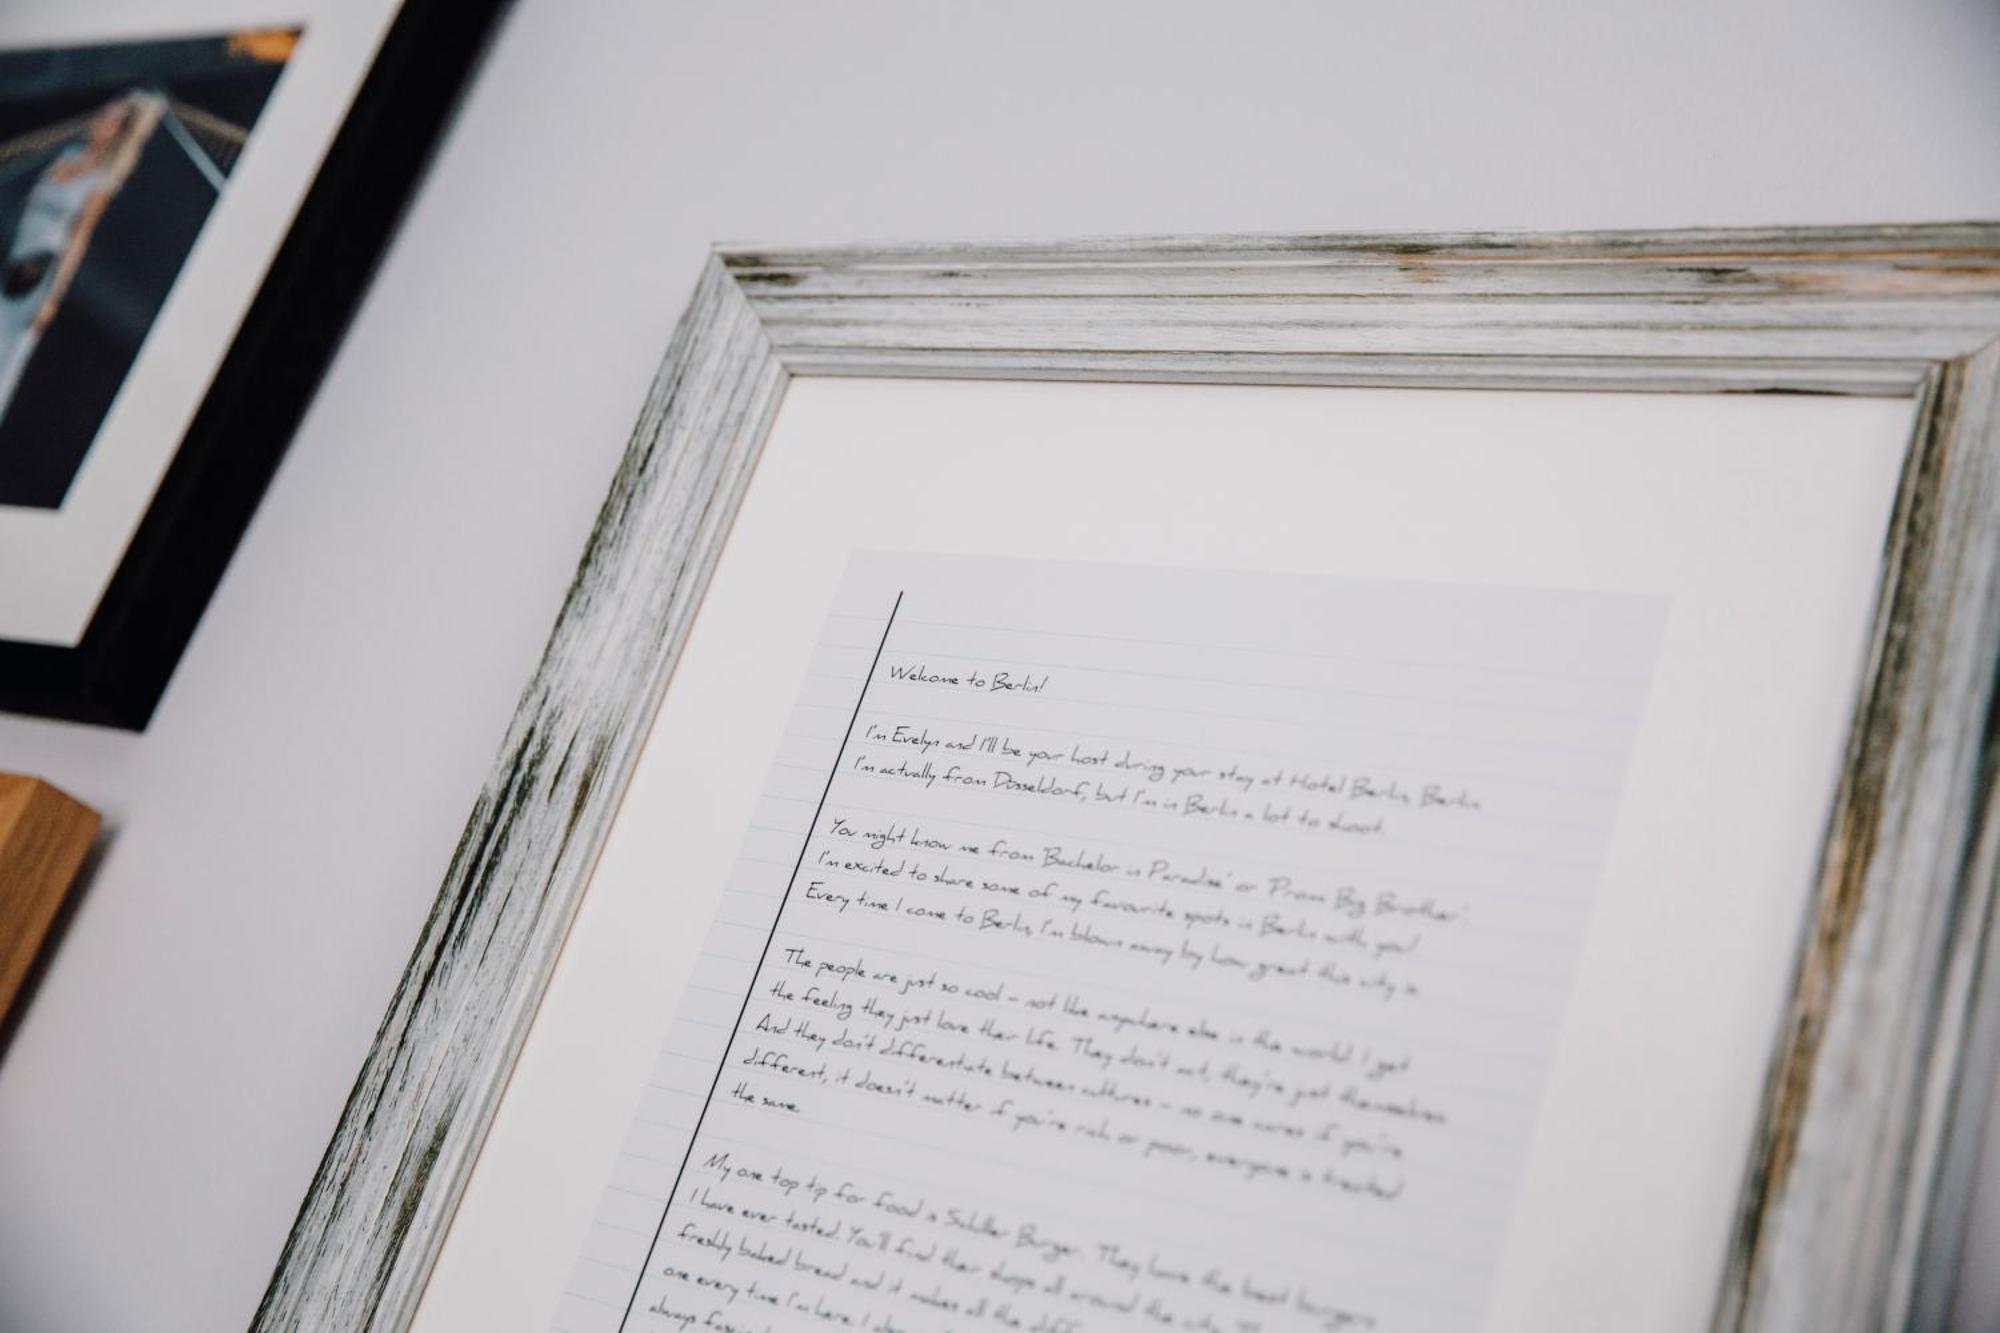 Welcome to Berlin!
I'm Evelyn and I'll be your host during your stay at Hotel Berlin, Berlin.
I'm actually from Düsseldorf, but I'm in Berlin a lot to shoot.
You might know me from 'Bachelor in Paradise' or 'Prom Big Brother'.
I'm excited to share some of my favourite spots in Berlin with you!
Every time I come to Berlin, I'm blown away by how great this city is.
The people are just so cool – not like anywhere else in the world. I get
the feeling they just love their life. They don't act, they're just themselves.
And they don't differentiate between cultures – no one cares if you're
different, it doesn't matter if you're rich or poor, everyone is treated
the same.
My one top tip for food is Schiller Burger. They have the best burgers
I have ever tasted. You'll find their shops all around the city.
freshly baked bread and it makes all the
one every time I'm here. I
always